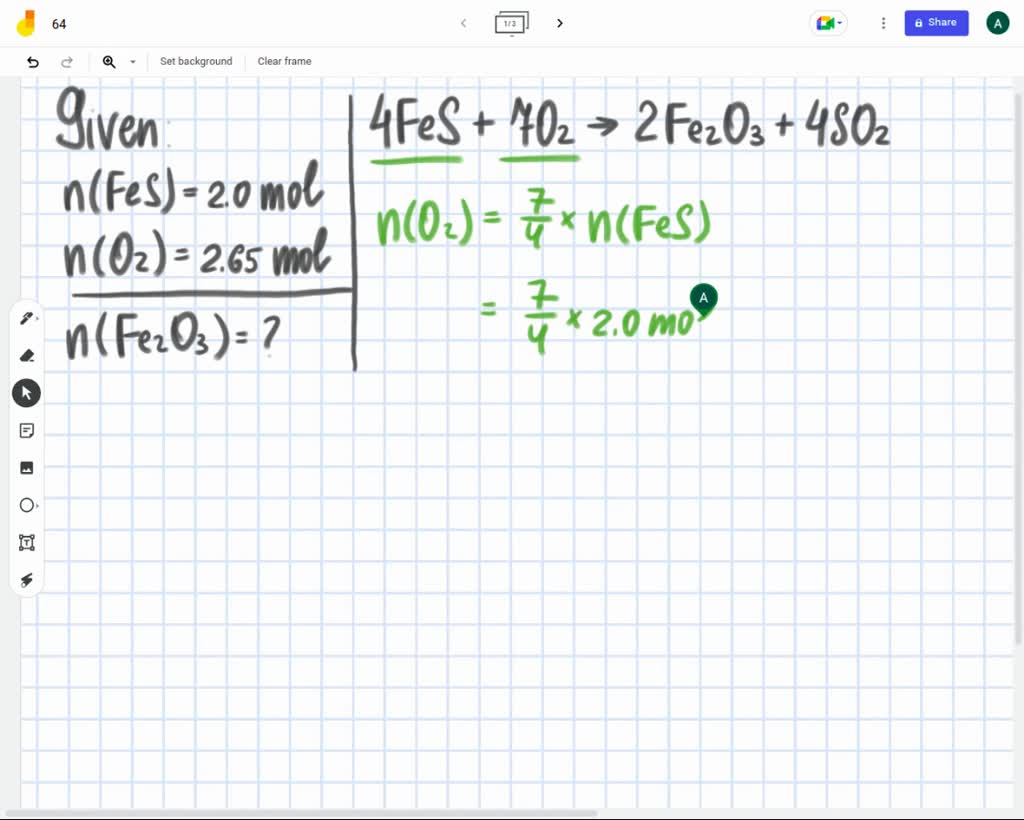 64
1/3
Share
A
Set background
Clear frame
Given:
n(FeS) = 2.0 mol
n(O₂) = 2.65 mol
n(Fe₂O₃) = ?
4FeS + 7O₂ → 2Fe₂O₃ + 4SO₂
n(O₂) = 7/4 × n(FeS)
= 7/4 × 2.0 mo
A